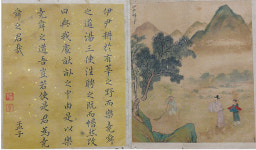 伊尹耕於有莘之野而樂堯舜
之道湯三使往聘之既而幡然改
曰與我處畎畝之中由是以樂
堯舜之道吾豈若使是君為堯
舜之君哉
孟子